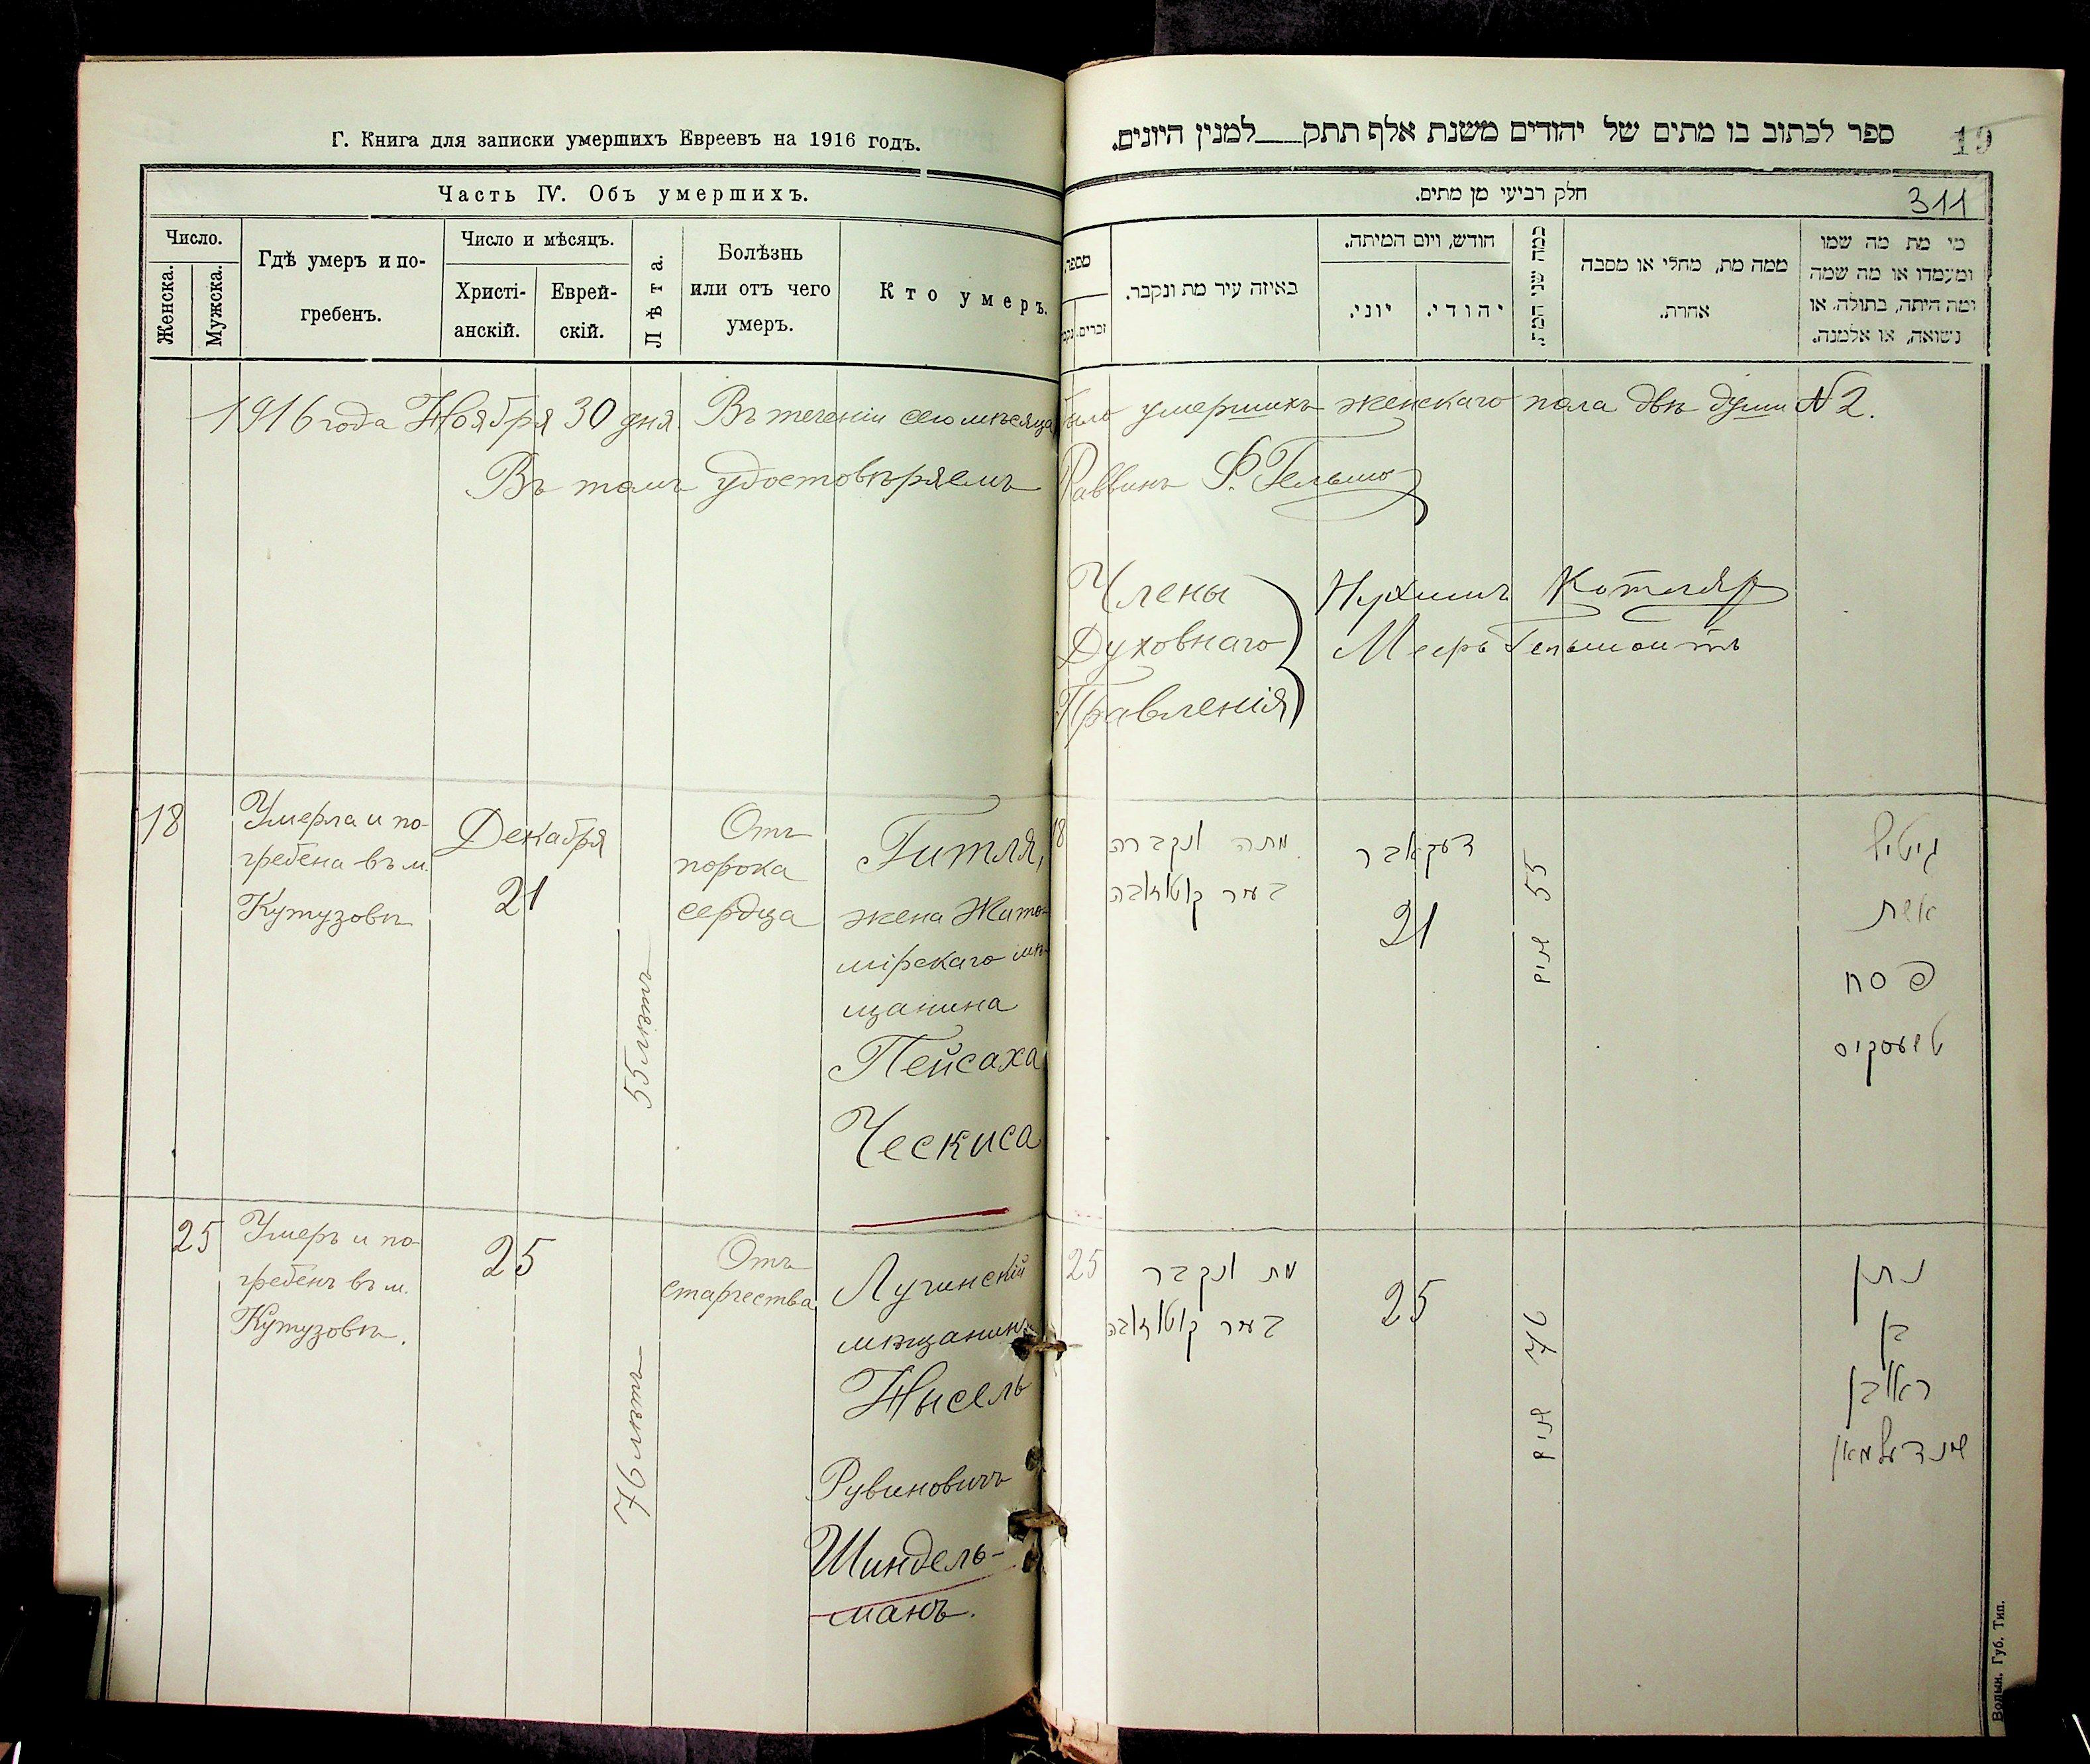 Г. Книга для записки умершихъ Евреевъ на 1916 годъ.
Часть IV. Объ умершихъ.
Число.
Женска.
Мужска.
Гдѣ умеръ и по-
гребенъ.
Число и мѣсяцъ.
Христі-
анскій.
Еврей-
скій.
Лѣта.
Болѣзнь
или отъ чего
умеръ.
Кто умеръ.
ספר לכתוב בו מתים של יהודים משנת אלף תתק למנין היונים.
19
חלק רביעי מן מתים.
311
מספר
זכרים.
באיזה עיר מת ונקבר.
חודש, ויום המיתה.
יהודי.
יוני.
כמה שני המת
ממה מת, מחלי או מסבה
אחרת.
מי מת מה שמו
ומעמדו או מה שמה
ומה היתה, בתולה, או
נשואה, או אלמנה.
1916 года Ноября 30 дня Въ теченіи сего мѣсяца было умершихъ женскаго пола двѣ души № 2.
Въ томъ удостовѣряемъ Раввинъ
Члены
Духовнаго
Правленія
Нухимъ Котляр
Мееръ
18
Умерла и по-
гребена въ м.
Кутузовѣ
Декабря
21
55 лѣтъ
Отъ
порока
сердца
Гитля,
жена Жито-
мірскаго мѣ-
щанина
Пейсаха
Ческиса
18
מתה ונקברה
בעיר קוטוזובה
דעקאבר
21
55 שנים
גיטיל
אשת
פסח
טשעסקיס
25
Умеръ и по-
гребенъ въ м.
Кутузовѣ.
25
76 лѣтъ
Отъ
старчества
Лучинскій
мѣщанинъ
Нысель
Рувиновичъ
Шиндель-
манъ.
25
מת ונקבר
בעיר קוטוזובה
25
76 שנים
נתן
בן
ראובן
שינדעלמאן
Волын. Губ. Тип.